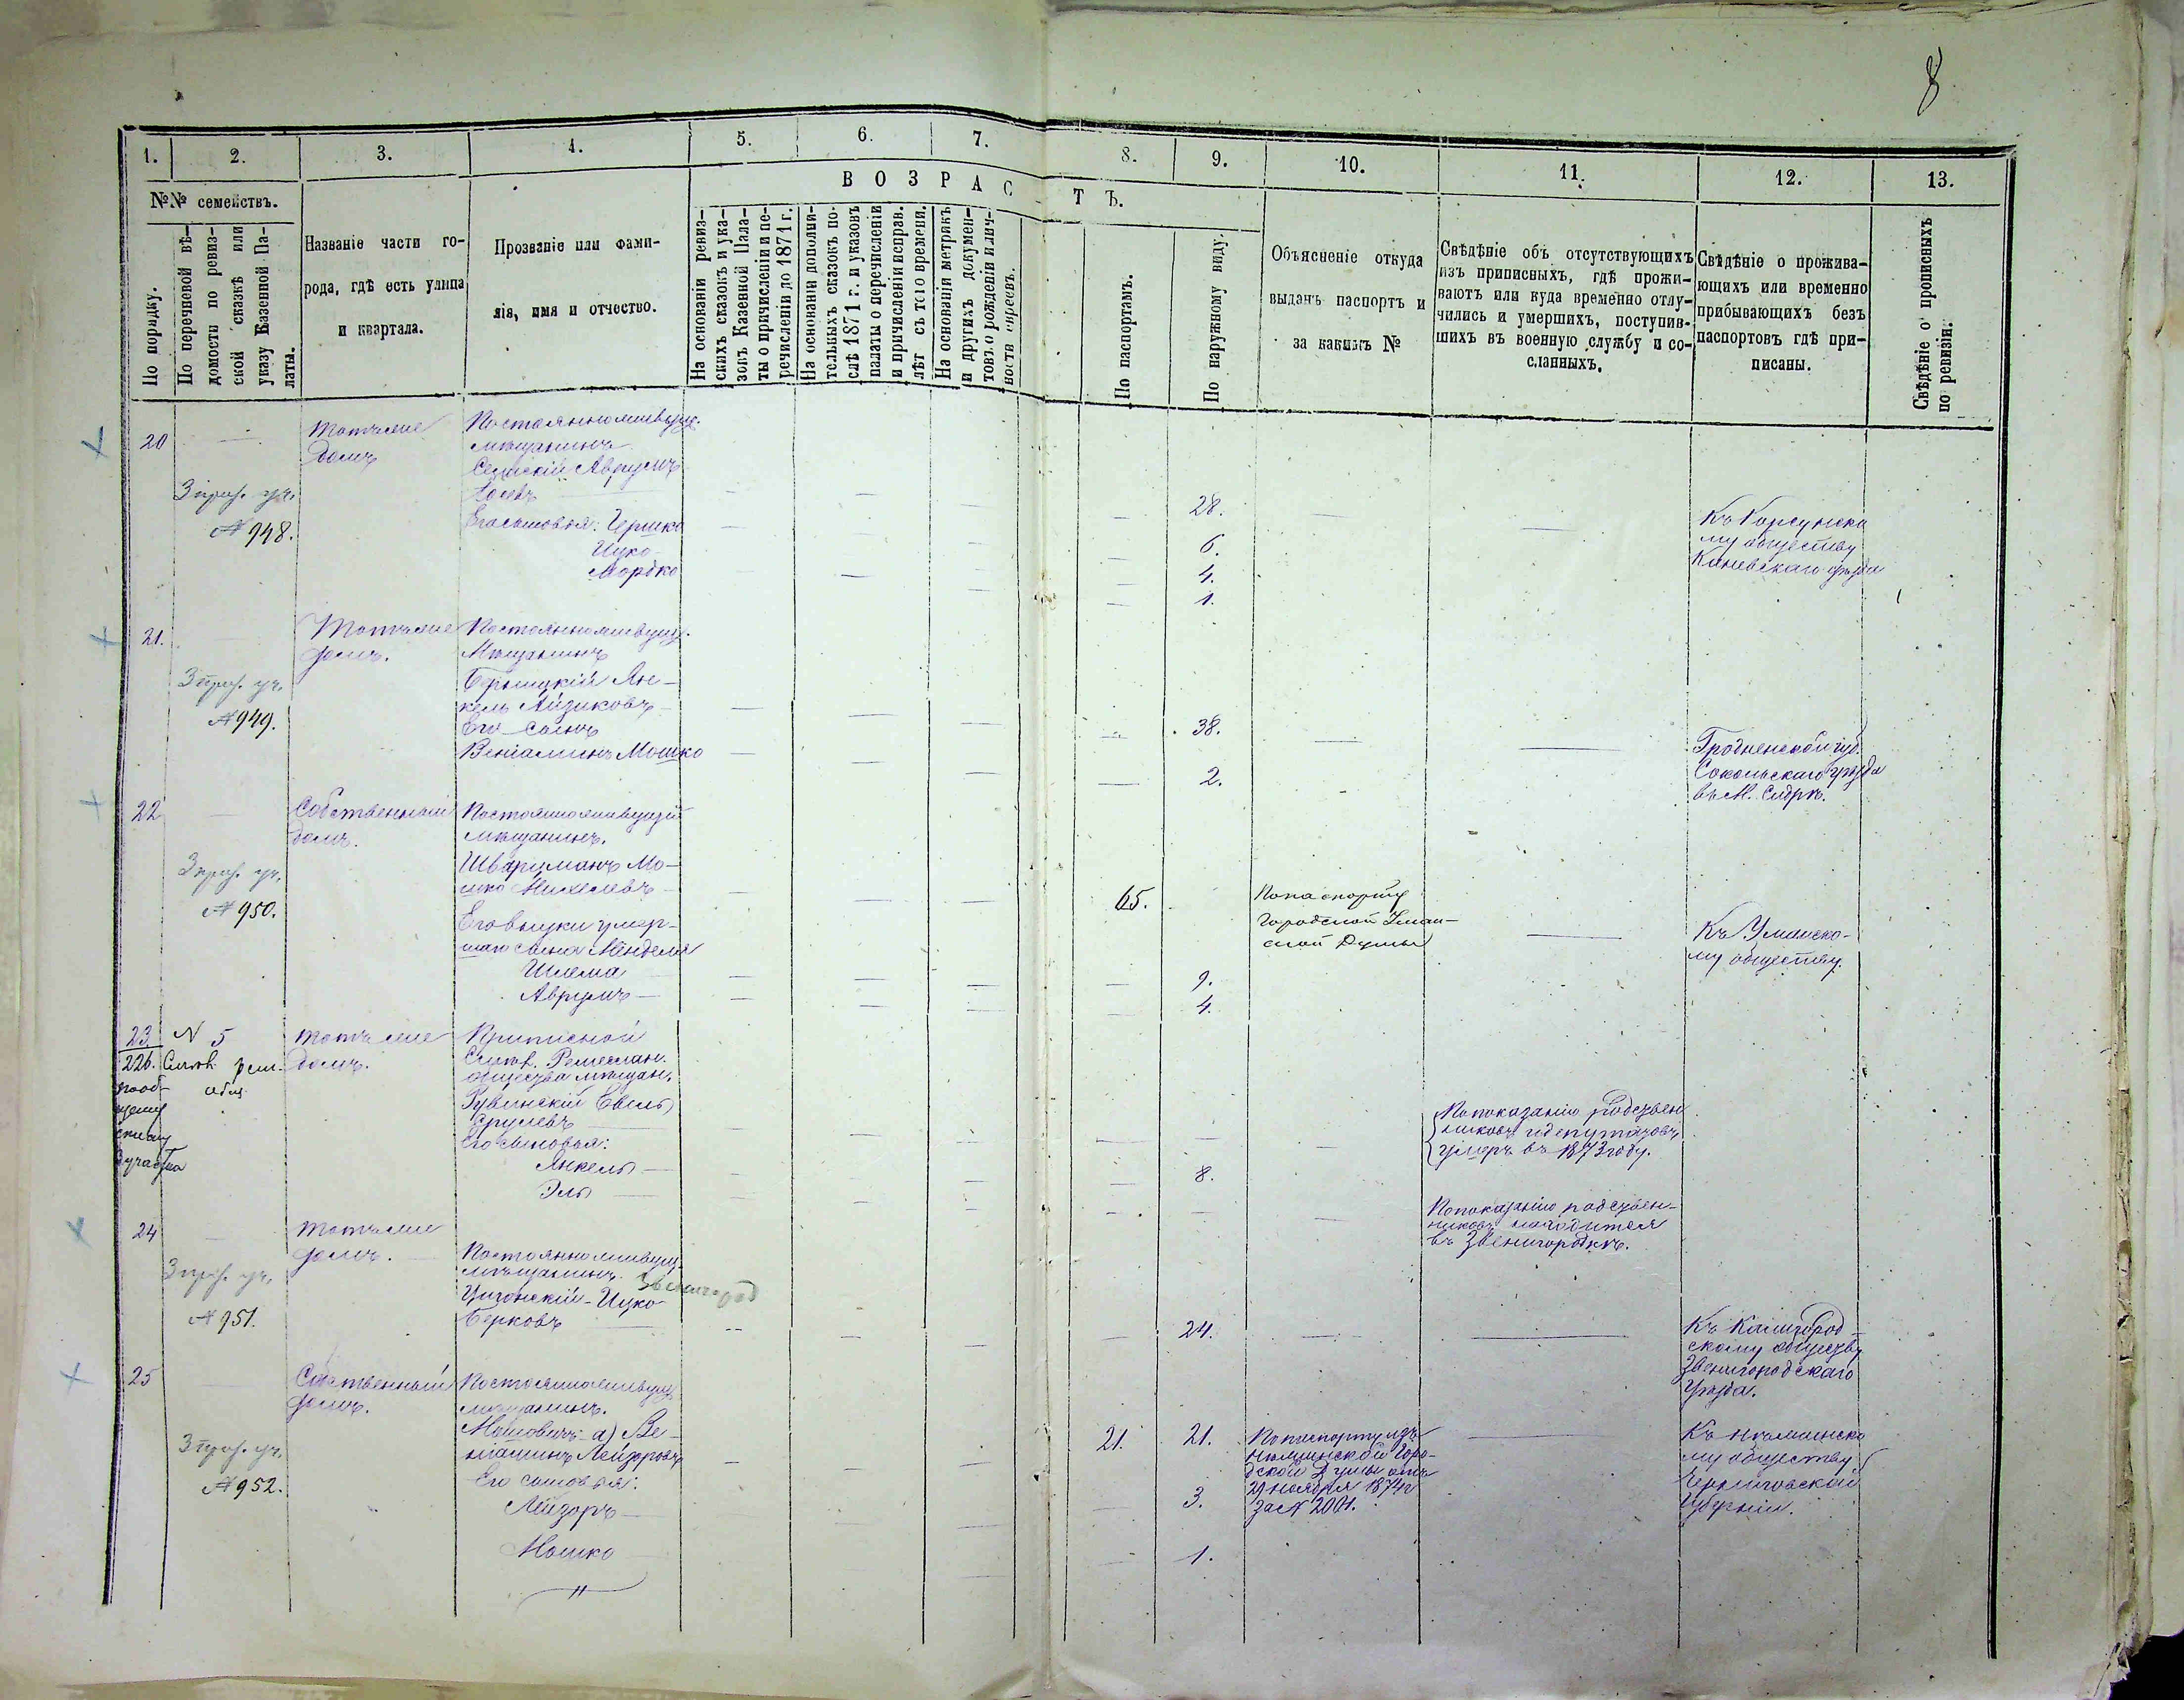 8
1. 2. 3. 4. 5. 6. 7. 8. 9. 10. 11. 12. 13.
№№ семействъ.
По порядку.
По перечневой вѣ-
домости по ревиз-
ской сказкѣ или
указу Казенной Па-
латы.
Названіе части го-
рода, гдѣ есть улица
и квартала.
Прозваніе или фами-
лія, имя и отчество.
ВОЗРАСТЪ.
На основаніи ревиз-
скихъ сказокъ и ука-
зовъ Казенной Пала-
ты о причисленіи и пе-
речисленіи до 1871 г.
На основаніи дополни-
тельныхъ сказокъ по-
слѣ 1871 г. и указовъ
палаты о перечисленіи
и причисленіи исправ.
лѣт съ того времени.
На основаніи метрикъ
и другихъ докумен-
товъ о рожденіи и лич-
ности евреевъ.
По паспортамъ.
По наружному виду.
Объясненіе откуда
выданъ паспортъ и
за какимъ №
Свѣдѣніе объ отсутствующихъ
изъ приписныхъ, гдѣ прожи-
ваютъ или куда временно отлу-
чились и умершихъ, поступив-
шихъ въ военную службу и со-
сланныхъ.
Свѣдѣніе о прожива-
ющихъ или временно
прибывающихъ безъ
паспортовъ гдѣ при-
писаны.
Свѣдѣніе о прописныхъ
по ревизіи.
20
3 уч.
№ 948.
домъ
мѣщанинъ
Аврумъ
Его сыновья: Гершко
Ицко
Мордко
28.
6.
4.
1.
Къ Корсунско
му обществу
Каневскаго уѣзда
21.
3 уч.
№ 949.
домъ.
Мѣщанинъ
Ян-
кель Айзиковъ
Его сынъ
Веніаминъ Мошко
38.
2.
Гродненской губ.
Сокольскаго уѣзда
въ М. Сидрѣ.
22
3 уч.
№ 950.
Собственный
домъ.
Постояннопживущій
мѣщанинъ.
Шварцманъ Мо-
шко Михелевъ
Его внуки умер-
шаго сына Менделя
Шлема
Аврумъ
65.
9.
4.
По паспорту
Городской Уман-
ской Думы
Къ Уманско-
му обществу.
23
226.
N 5
домъ.
Приписной
общества мѣщан.
Рувинскій
Срулевъ
Его сыновья:
Янкель
Эль
8.
По показанію родствен
никовъ и депутатовъ
умеръ въ 1873 году.
По показанію родствен-
никовъ находится
въ Звенигородкѣ.
24
3 уч.
№ 951.
домъ.
мѣщанинъ.
Звенигород
Ицко
Берковъ
24.
скому обществу
Звенигородскаго
уѣзда.
25
3 уч.
№ 952.
Собственный
домъ.
мѣщанинъ.
а) Ве-
ніаминъ Лейзоровъ
Его сыновья:
Лейзоръ
Мошко
21.
21.
3.
1.
По паспорту изъ
Нѣжинской Горо-
дской Думы отъ
29 ноября 1874 г
за № 2001.
Къ Нѣжинско
му обществу
Черниговской
Губерніи.